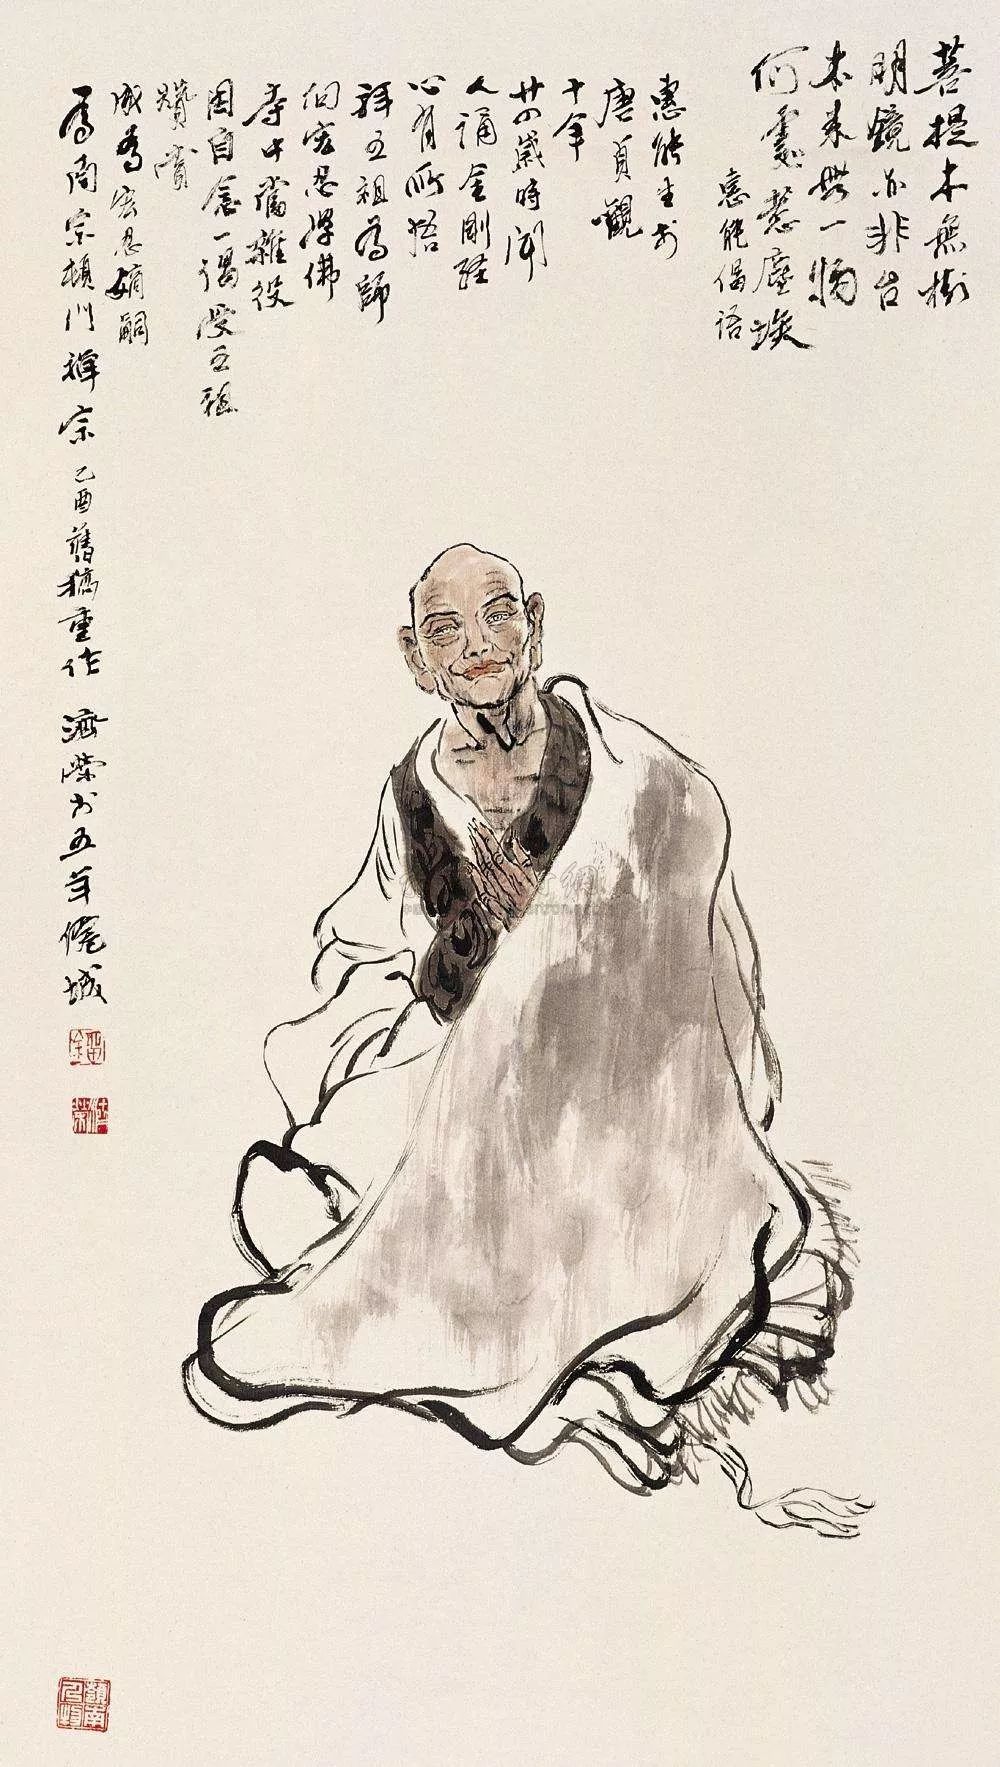 菩提本無樹
明鏡亦非台
本來無一物
何處惹塵埃
惠能偈语
惠能生於
唐貞觀
十年
廿四歲時聞
人誦金剛経
心有所悟
拜五祖為師
向宏忍學佛
寺中當雜役
因自念一偈受五祖
贊賞
成為宏忍嫡嗣
為南宗頓門禅宗 乙酉舊稿重作 濟榮於五羊穗城
嶺南